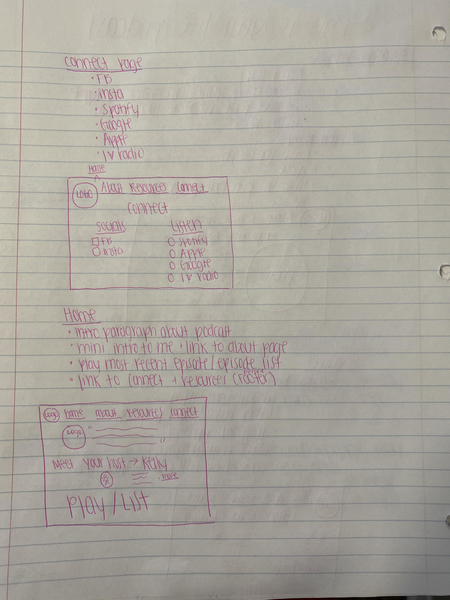 Connect Page
• FB
• insta
• Spotify
• Google
• Apple
• IV radio
Home
LOGO About Resources Connect
Connect
Socials Listen
FB Spotify
insta Apple
Google
IV radio
Home
• intro paragraph about podcast
• mini intro to me + link to about page
• play most recent episode/episode list
• link to connect + resources (footer)
LOGO Home about resources connect
LOGO
Meet your host → Kelly
more
Play / List